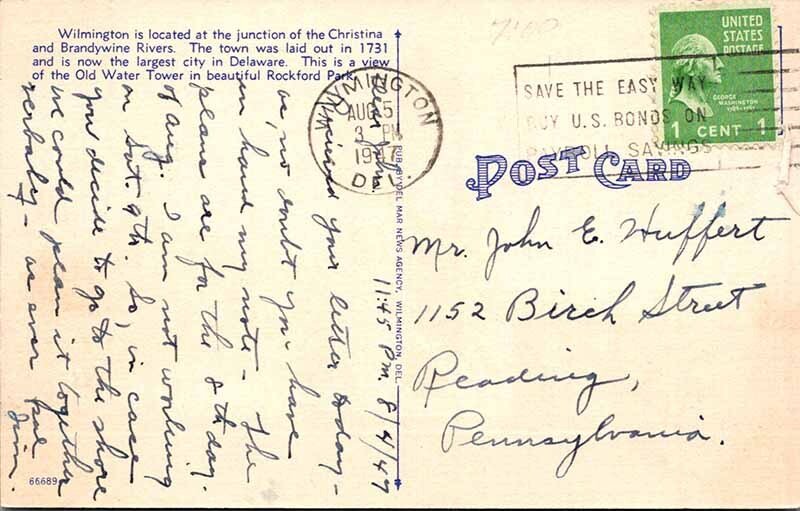 Wilmington is located at the junction of the Christina
and Brandywine Rivers. The town was laid out in 1731
and is now the largest city in Delaware. This is a view
of the Old Water Tower in beautiful Rockford Park.
WILMINGTON
AUG 5
3 PM
DEL
SAVE THE EASY WAY
BUY U.S. BONDS ON
PAYROLL SAVINGS
UNITED
STATES
POSTAGE
GEORGE
WASHINGTON
1 CENT 1
POST CARD
Mr. John E. Huffert
1152 Birch Street
Reading,
Pennsylvania.
11:45 P.M. 8/4/47
Dear John:
Received your letter today -
no doubt you have
in hand my note - The
plans are for the 8th day
of Aug. I am not working
on Sat 9th. So, in case
you decide to go to the shore
we could plan it together
verbally - as ever
Jim.
PUB. BY DEL MAR NEWS AGENCY, WILMINGTON, DEL.
66689